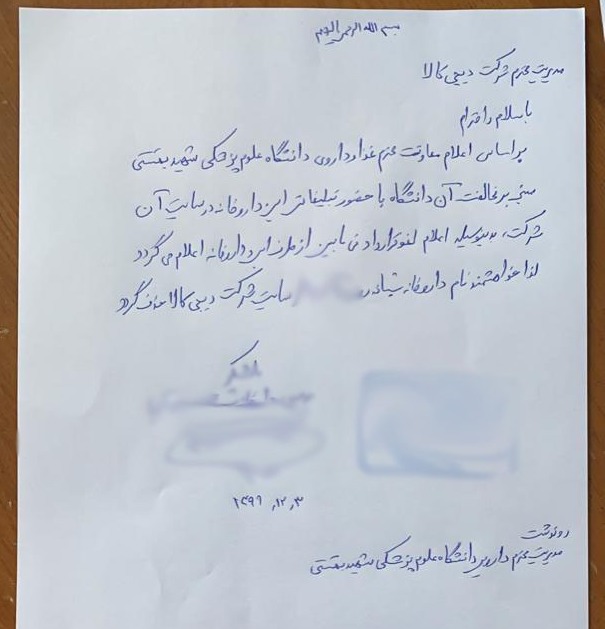 بسم الله الرحمن الرحیم
مدیریت محترم شرکت دیجی کالا
با سلام و احترام
براساس اعلام معاونت محترم غذا و داروی دانشگاه علوم پزشکی شهید بهشتی
مبنی بر مخالفت آن دانشگاه با حضور تبلیغاتی این داروخانه در سایت آن
شرکت، بدینوسیله اعلام لغو قرارداد فی مابین از طرف این داروخانه اعلام می گردد
لذا خواهشمند نام داروخانه اینجانب در سایت شرکت دیجی کالا حذف گردد
با تشکر
۱۳۹۹/۱۲/۳
رونوشت
مدیریت محترم دارویی دانشگاه علوم پزشکی شهید بهشتی